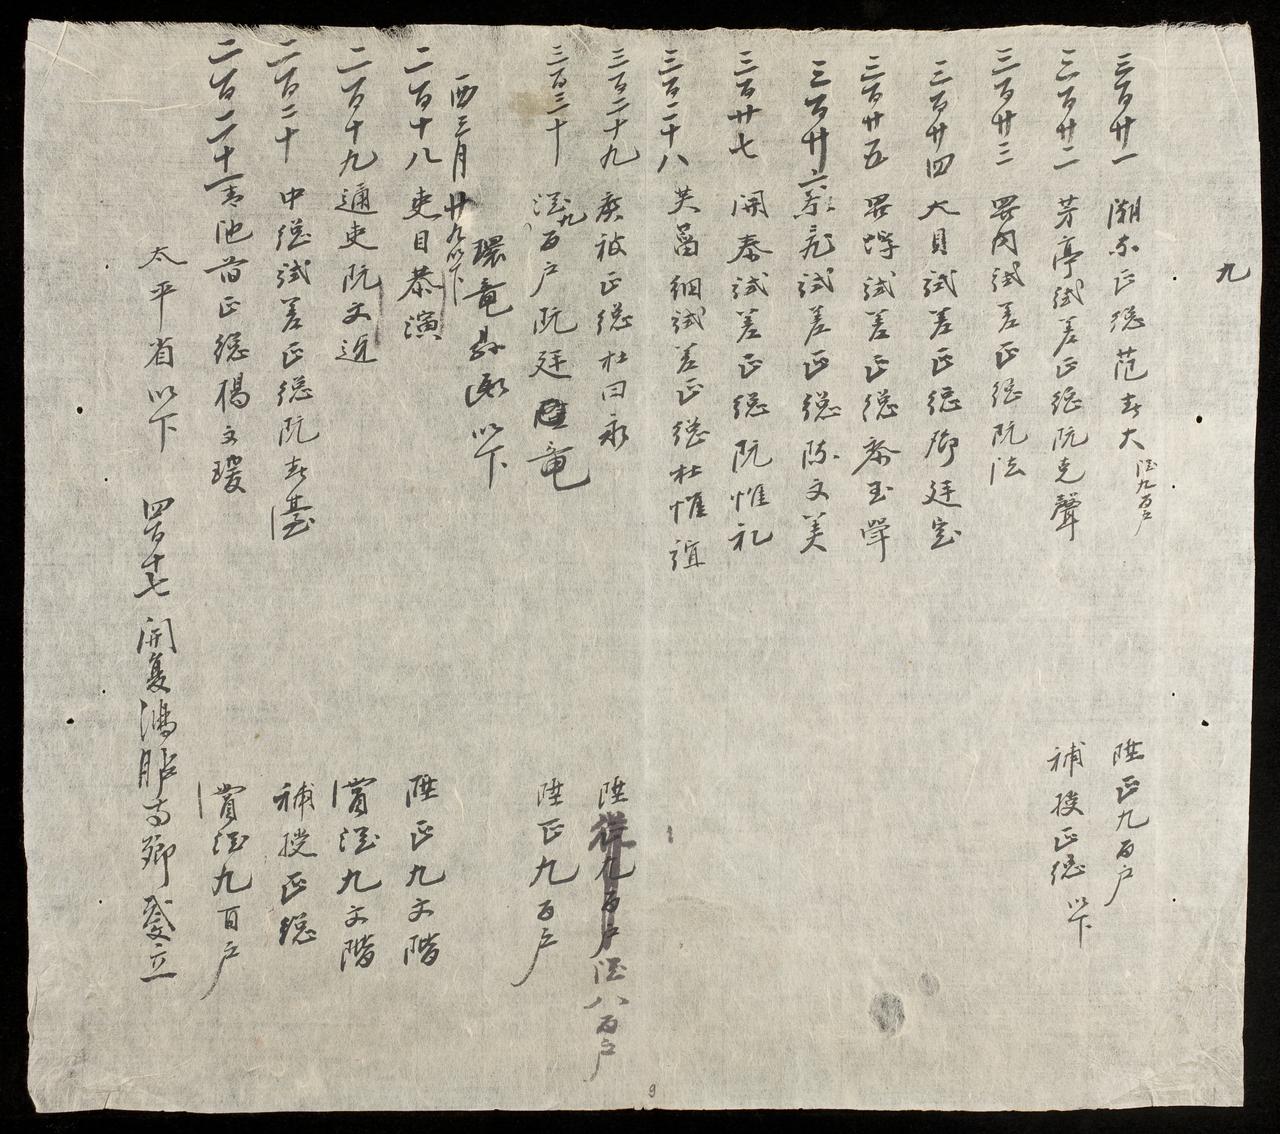 九
三百廿一 潮東正總范春大 從九百户 陞正九百户
三百廿二 芳亭試差正總阮克聲 補授正總 以下
三百廿三 罢內試差正總阮法
三百廿四 大貝試差正總鄧廷宝
三百廿五 試差正總泰玉
三百廿六 試差正總陈文美
三百廿七 開泰試差正總阮惟礼
三百二十八 美筃細試差正總杜惟誼
三百二十九 廣被正總杜曰永 陞九百户從八百户
三百三十 從九百户阮廷竜 陞正九百户
環竜縣 以下
酉三月廿九以下
二百十八 吏目泰演 陞正九文階
二百十九 通吏阮文近 賞從九文階
二百二十 中總試差正總阮春臺 補授正總
二百二十一 青池前正總楊文瑗 賞從九百户
太平省以下 四百十七 開复鴻胪寺卿 立